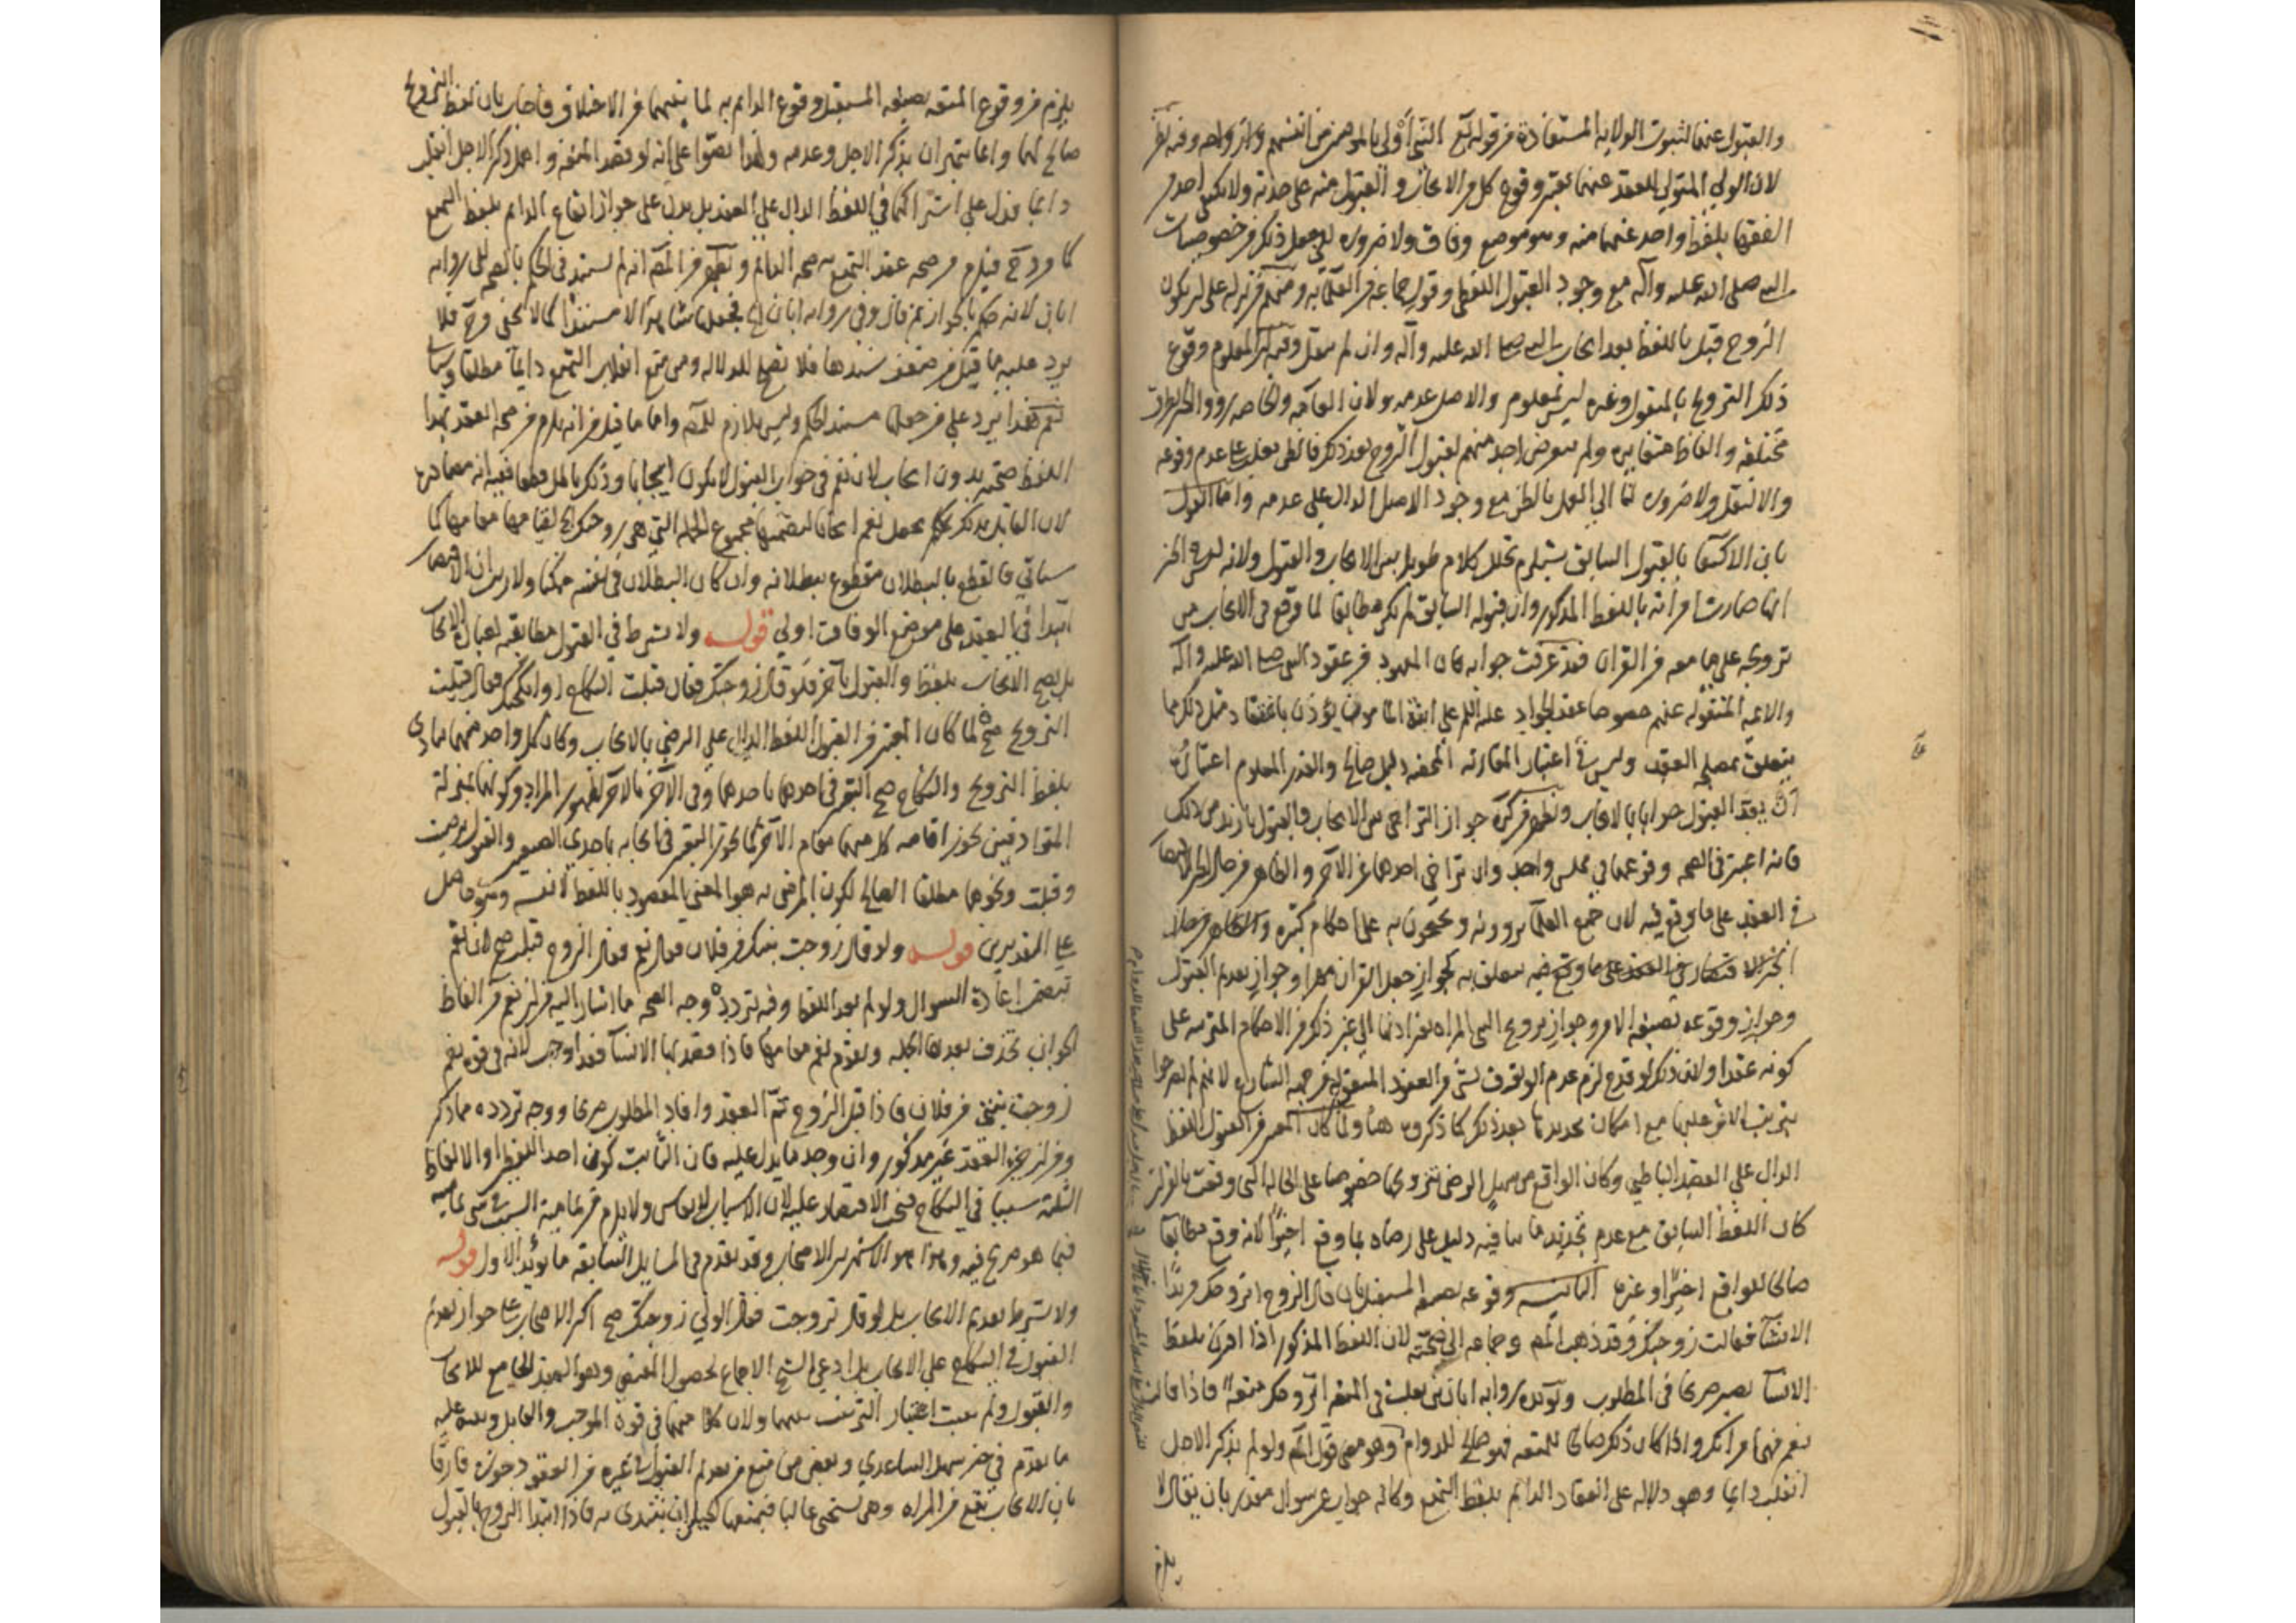 والقبول عنهما لثبوت الولاية المستفادة من قوله تع النبي أولى بالمؤمنين من انفسهم وازواجه وفيه نظر
لان الولي المتولي للعقد عنهما يعتبر وقوع كل من الايجاب و القبول منه على حدته ولا يكفي احد من
الفقها بلفظ واحد عنهما منه وهو موضع وفاق ولا ضرورة الى جعل ذلك من خصوصيات
النبي صلى الله عليه وآله مع وجود القبول اللفظي وقول جماعة من العلماء به ومنهم من نزله على ان يكون
الزوج قبل باللفظ بعد ايجاب النبي صلى الله عليه وآله وان لم ينقل وفيه ان المعلوم وقوع
ذلك التزويج بالمنقول وغيره ليس بمعلوم والاصل عدمه ولان العامة والخاصة رووا الخبر بطرق
مختلفة والفاظ متغايرة ولم يتعرض احد منهم لقبول الزوج بعد ذلك فالظن يغلب على عدم وقوعه
والا لنقل ولا ضرورة لنا الى العمل بالظن مع وجود الاصل الدال على عدمه واما القول
بان الاكتفا بالقبول السابق يستلزم تخلل كلام طويل بين الايجاب والقبول ولانه ليس في الخبر
انها صارت امرأته باللفظ المذكور وان قبوله السابق لم يكن مطابقا لما وقع من الايجاب من
تزويجه على ما معه من القران فقد عرفت جوابه فان المعهود من عقود النبي صلى الله عليه وآله
والائمة المنقولة عنهم خصوصا عقد الجواد عليه السلم على ابنة المامون يؤذن باغتفار مثل ذلك مما
يتعلق بمصلحة العقد وليس في اعتبار المقارنة المحضة دليل صالح والقدر المعلوم اعتباره
ان يعد القبول جوابا للايجاب ويظهر من كره جواز التراخي بين الايجاب والقبول بازيد من ذلك
فانه اعتبر في الصحة وقوعهما في مجلس واحد وان تراخى احدهما عن الآخر والظاهر من حال الخبر الاقتصار
في العقد على ما وقع فيه لان جميع العلماء يروونه ويحتجون به على احكام كثيرة والظاهر من حال
الخبر الاقتصار في العقد على ما وقع فيه يتعلق به كجواز جعل القران مهرا وجواز تقديم القبول
وجواز وقوعه بصيغة الامر وجواز تزويج النبي المراه بغير اذنها الى غير ذلك من الاحكام المترتبة على
كونه عقدا ولان ذلك لو قدح لزم عدم الوثوق بشي من العقود المنقوله من جهة الشارع لانهم لم يصرحوا
بترتيب الاثر عليها مع امكان تجديدها بعد ذلك كما ذكروه هنا ولما كان المعتبر في القبول اللفظ
الدال على العقد الباطني وكان الواقع من سهل الرضى بتزويجها خصوصا على الحالة التي وقعت بالقران
كان اللفظ السابق مع عدم تجديد ما ينافيه دليل على رضاه بما وقع اخيرا لانه وقع مطابقا
صالحا للواقع اخيرا وغيره الثانيه وقوعه بصيغة المستقبل بان قال الزوج اتزوجك مريدا
الانشا فقالت زوجتك وقد ذهب المص وجماعه الى صحته لان اللفظ المذكور اذا اقترن بلفظ
الانشا يصير صريحا في المطلوب ويؤيده رواية ابان بن تغلب في المتعة اتزوجك متعة فاذا قالت
نعم فهي امراتك واذا كان ذلك صالحا للمتعه فهو صالح للدوام وهو معنى قول المص ولو لم يذكر الاجل
انقلب دايما وهو دلالة على انعقاد الدايم بلفظ التمتع وكانه جواب عن سوال مقدر بان يقال لا
يلزم
يلزم من وقوع المتعه بصيغه المستقبل وقوع الدايم به لما بينهما من الاختلاف فاجاب بان لفظ التزويج
صالح لهما وانما يتميزان بذكر الاجل وعدمه ولهذا نصوا على انه لو قصد المتعة و اهمل ذكر الاجل انقلب
دايما فدل على اشتراكهما في اللفظ الدال على العقد بل يدل على جواز ايقاع الدايم بلفظ التمتع
كما مر وح فيلزم من صحه عقد التمتع به صحه الدايم ويظهر من المص انه لم يستند في الحكم بالصحه الى رواية
ابان لانه حكم بالجواز ثم قال وفي رواية ابان الخ فجعلها شاهدا لا مستندا كما لا يخفى وح فلا
يرد عليه ما قيل من ضعف سندها فلا تصلح للدلالة ومن منع انقلاب التمتع دايما مطلقا وسيا
نعم هذا يرد على من جعلها مستند الحكم وليس بلازم للمص واما ما قيل من انه يلزم من صحه العقد بهذا
اللفظ صحته بدون ايجاب لان نعم في جواب القبول لا يكون ايجابا وذلك باطل قطعا ففيه انه مصادرة
لان القائل بذلك يجعل نعم ايجابا لتضمنها مجموع الجملة التي هي زوجتك الخ لقيامها مقامها كما
سياتي فالقطع بالبطلان مقطوع ببطلانه وان كان البطلان في نفسه ممكنا ولا ريب ان الاقتصار
ابتدا في العقد على موضع الوفاق اولى قوله ولا يشترط في القبول مطابقته لعبارة الايجاب
بل يصح الايجاب بلفظ والقبول بآخر فلو قال زوجتك فقال قبلت النكاح او انكحتك فقال قبلت
التزويج صح لما كان المعتبر في القبول اللفظ الدال على الرضى بالايجاب وكان كل واحد منهما يتادى
بلفظ التزويج والنكاح صح التعبير في احدهما باحدهما وفي الآخر بالآخر لظهور المراد وكونهما بمنزلة
المترادفين يجوز اقامه كل منهما مقام الآخر كما يجوز التعبير في ايجابه باحدى الصيغتين والقبول برضيت
وقبلت ونحوهما مطلقا الصالح لكون المرضى به هو المعنى المقصود باللفظ لا نفسه وهو حاصل
على التقديرين قوله ولو قال زوجت بنتك من فلان فقال نعم فقال الزوج قبلت صح لان نعم
تتضمن اعادة السوال ولو لم يعد اللفظ وفيه تردد وجه الصحه ما اشار اليه من ان نعم من الفاظ
الجواب تحذف بعدها الجملة وتقوم نعم مقامها فاذا قصد بها الانشا فقد اوجب لانه في قوة نعم
زوجت بنتي من فلان فاذا قبل الزوج تم العقد وافاد المطلوب صريحا ووجه تردده مما ذكر
ومن ان جزء العقد غير مذكور وان وجد ما يدل عليه فان الثابت كون احد اللفظين او الالفاظ
الثلثة سببا في النكاح فيجب الاقتصار عليه لان الاسباب لا تقاس ولا يلزم من قائمية السبب شي مقامه
فيما هو صريح فيه وهذا هو الاشهر بين الاصحاب وقد تقدم في المسايل السابقه ما يؤيد الاول قوله
ولا يشترط تقديم الايجاب بل لو قال تزوجت فقال الولي زوجتك صح اكثر الاصحاب على جواز تقديم
القبول في النكاح على الايجاب بل ادعى الشيخ الاجماع لحصول المقتضي وهو العقد الجامع للايجاب
والقبول ولم يثبت اعتبار الترتيب بينهما ولان كلا منهما في قوة الموجب والقابل ويدل عليه
ما تقدم في خبر سهل الساعدي وبعض من منع من تقديم القبول في غيره من العقود جوزه فارقا
بان الايجاب يقع من المراه وهي تستحي غالبا فيمنعها الحيا ان تبتدى به فاذا ابتدا الزوج بالقبول